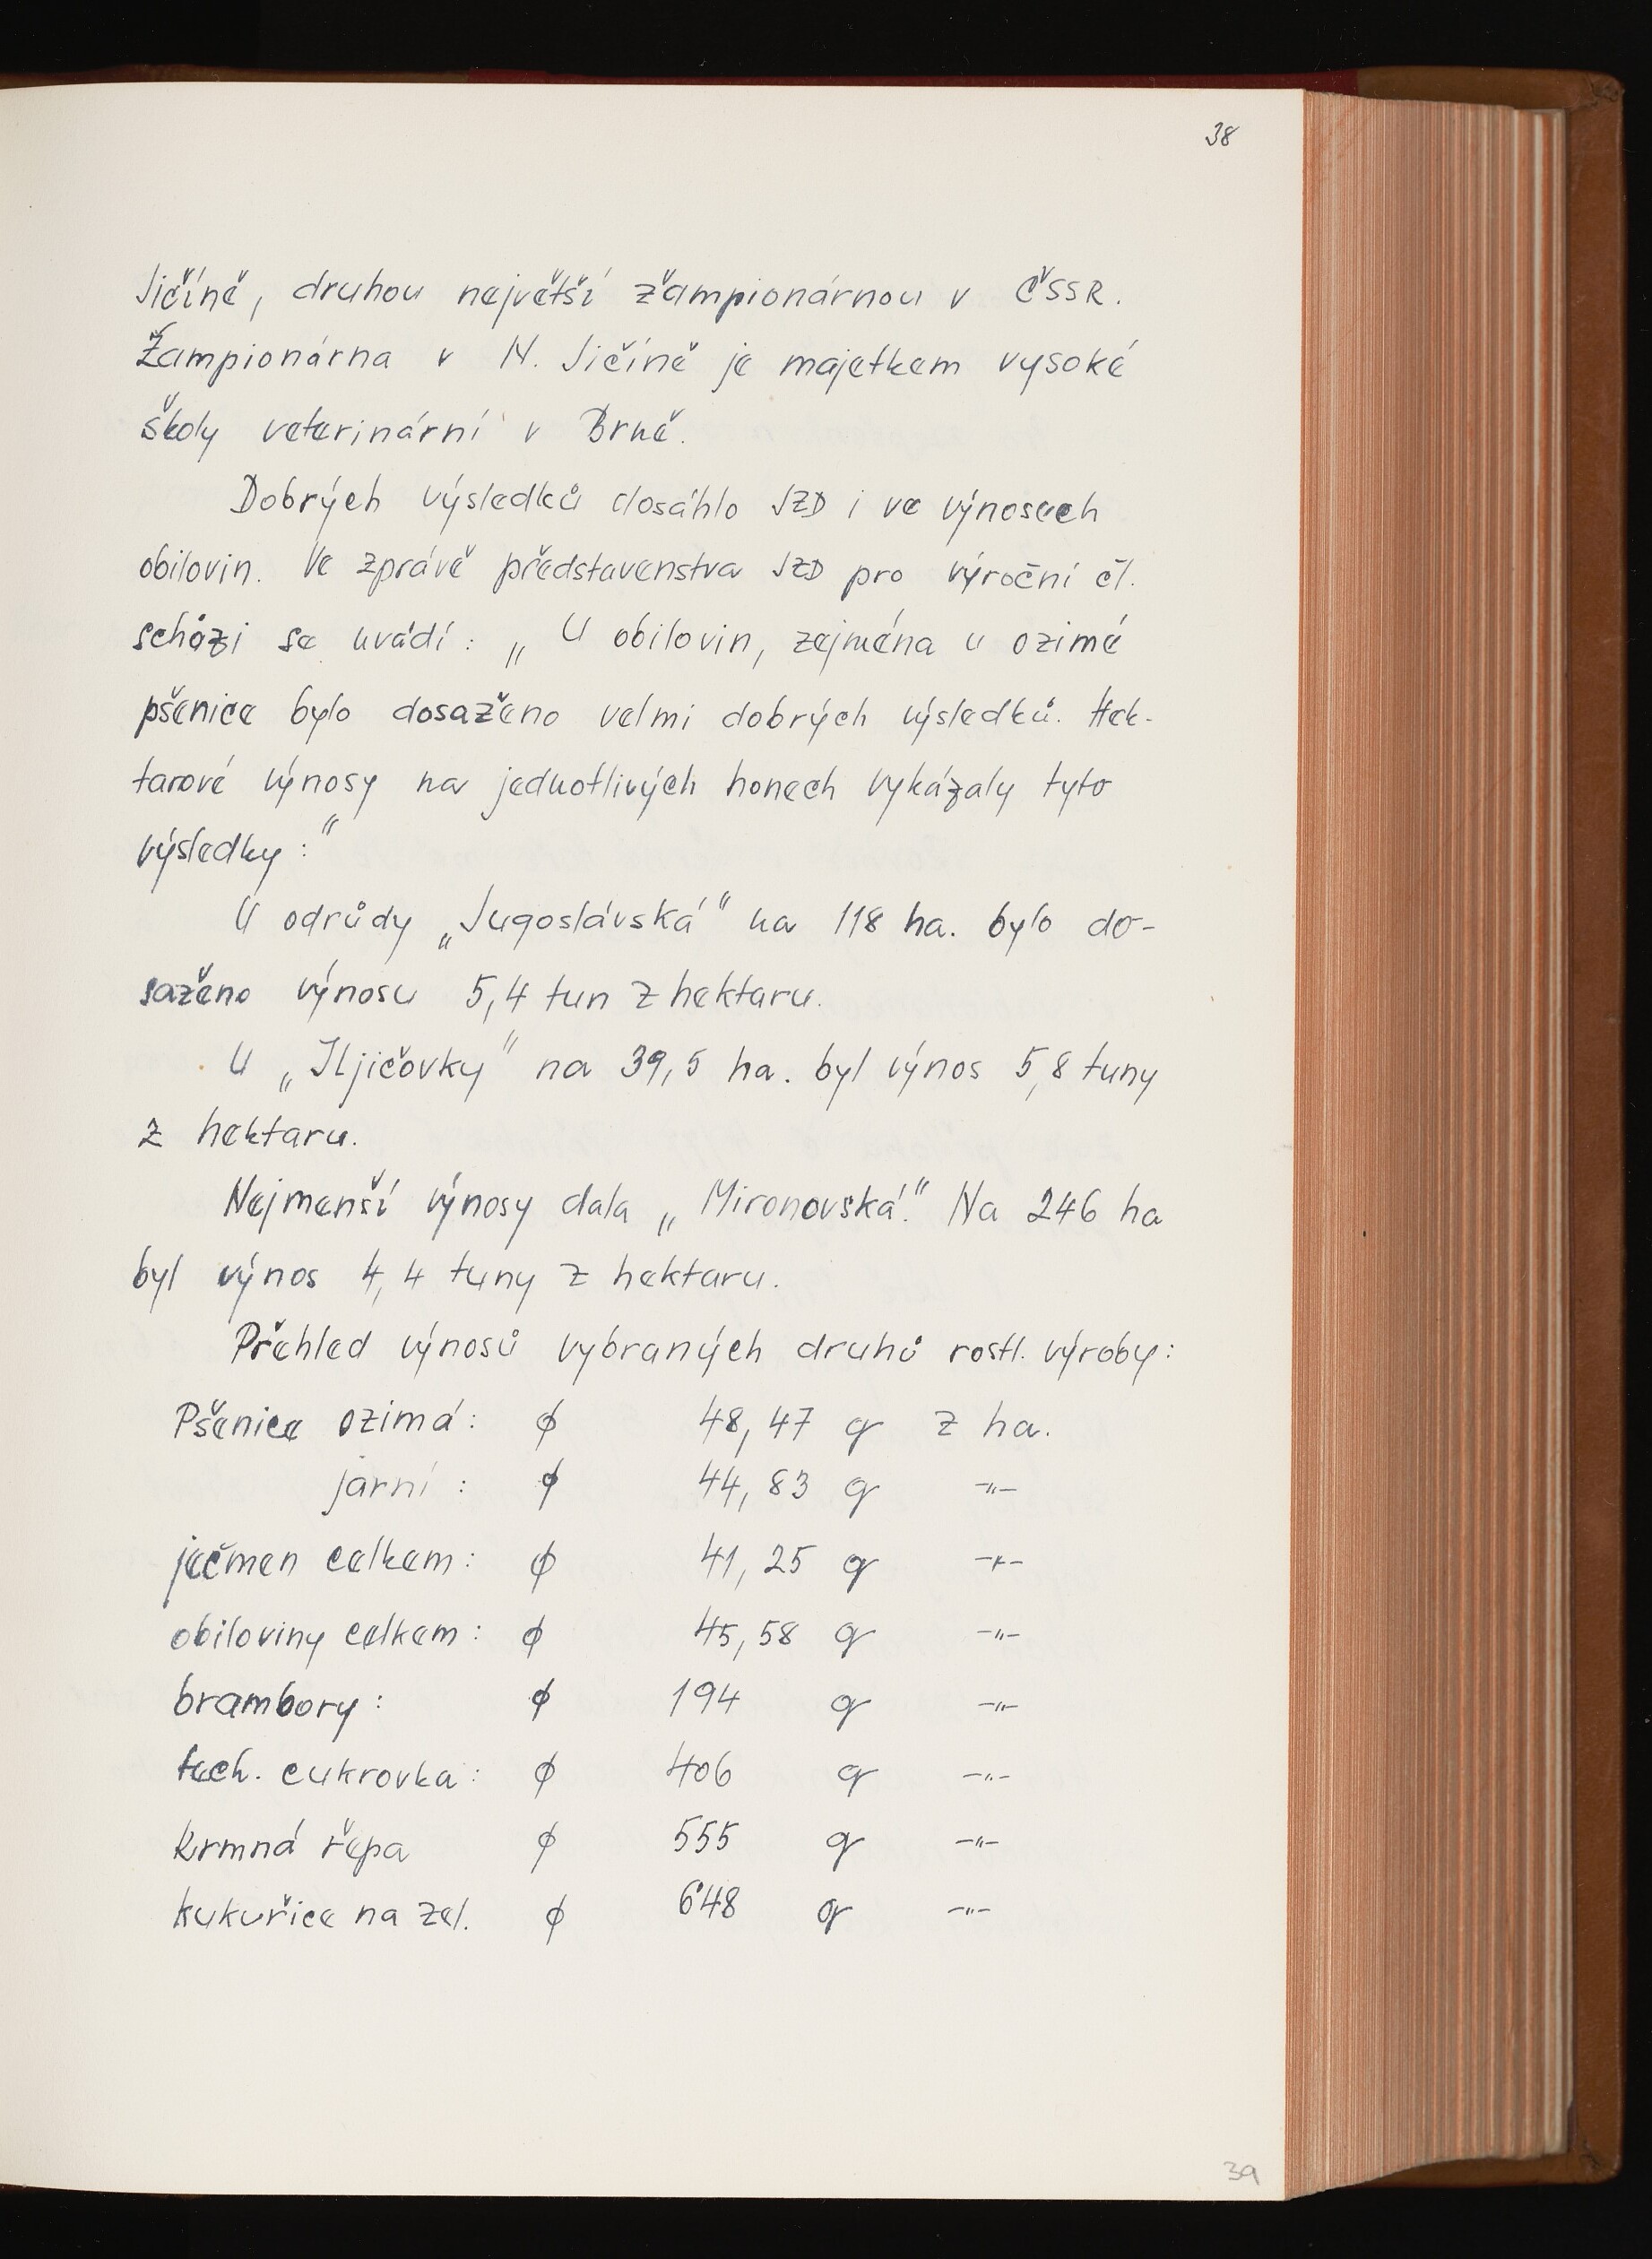 38
Jičíně, druhou největší žampionárnou v ČSSR.
Žampionárna v N. Jičíně je majetkem vysoké
školy veterinární v Brně.
Dobrých výsledků dosáhlo JZD i ve výnosech
obilovin. Ve zprávě představenstva JZD pro výroční čl.
schůzi se uvádí: „U obilovin, zejména u ozimé
pšenice bylo dosaženo velmi dobrých výsledků. Hek-
tarové výnosy na jednotlivých honech vykázaly tyto
výsledky:“
U odrůdy „Jugoslávská“ na 118 ha. bylo do-
saženo výnosu 5,4 tun z hektaru.
U „Iljičovky“ na 39,5 ha. byl výnos 5,8 tuny
z hektaru.
Nejmenší výnosy dala „Mironovská.“ Na 246 ha
byl výnos 4,4 tuny z hektaru.
Přehled výnosů vybraných druhů rostl. výroby:
Pšenice ozimá: ϕ 48,47 q z ha.
jarní: ϕ 44,83 q -"-
ječmen celkem: ϕ 41,25 q -"-
obiloviny celkem: ϕ 45,58 q -"-
brambory: ϕ 194 q -"-
tech. cukrovka: ϕ 406 q -"-
krmná řepa ϕ 555 q -"-
kukuřice na zel. ϕ 648 q -"-
39